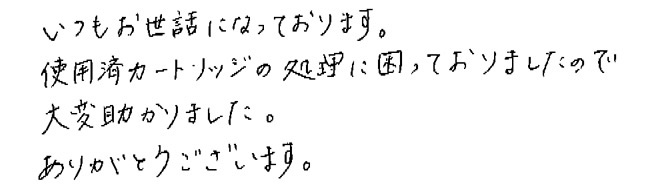 いつもお世話になっております。
使用済カートリッジの処理に困っておりましたので
大変助かりました。
ありがとうございます。